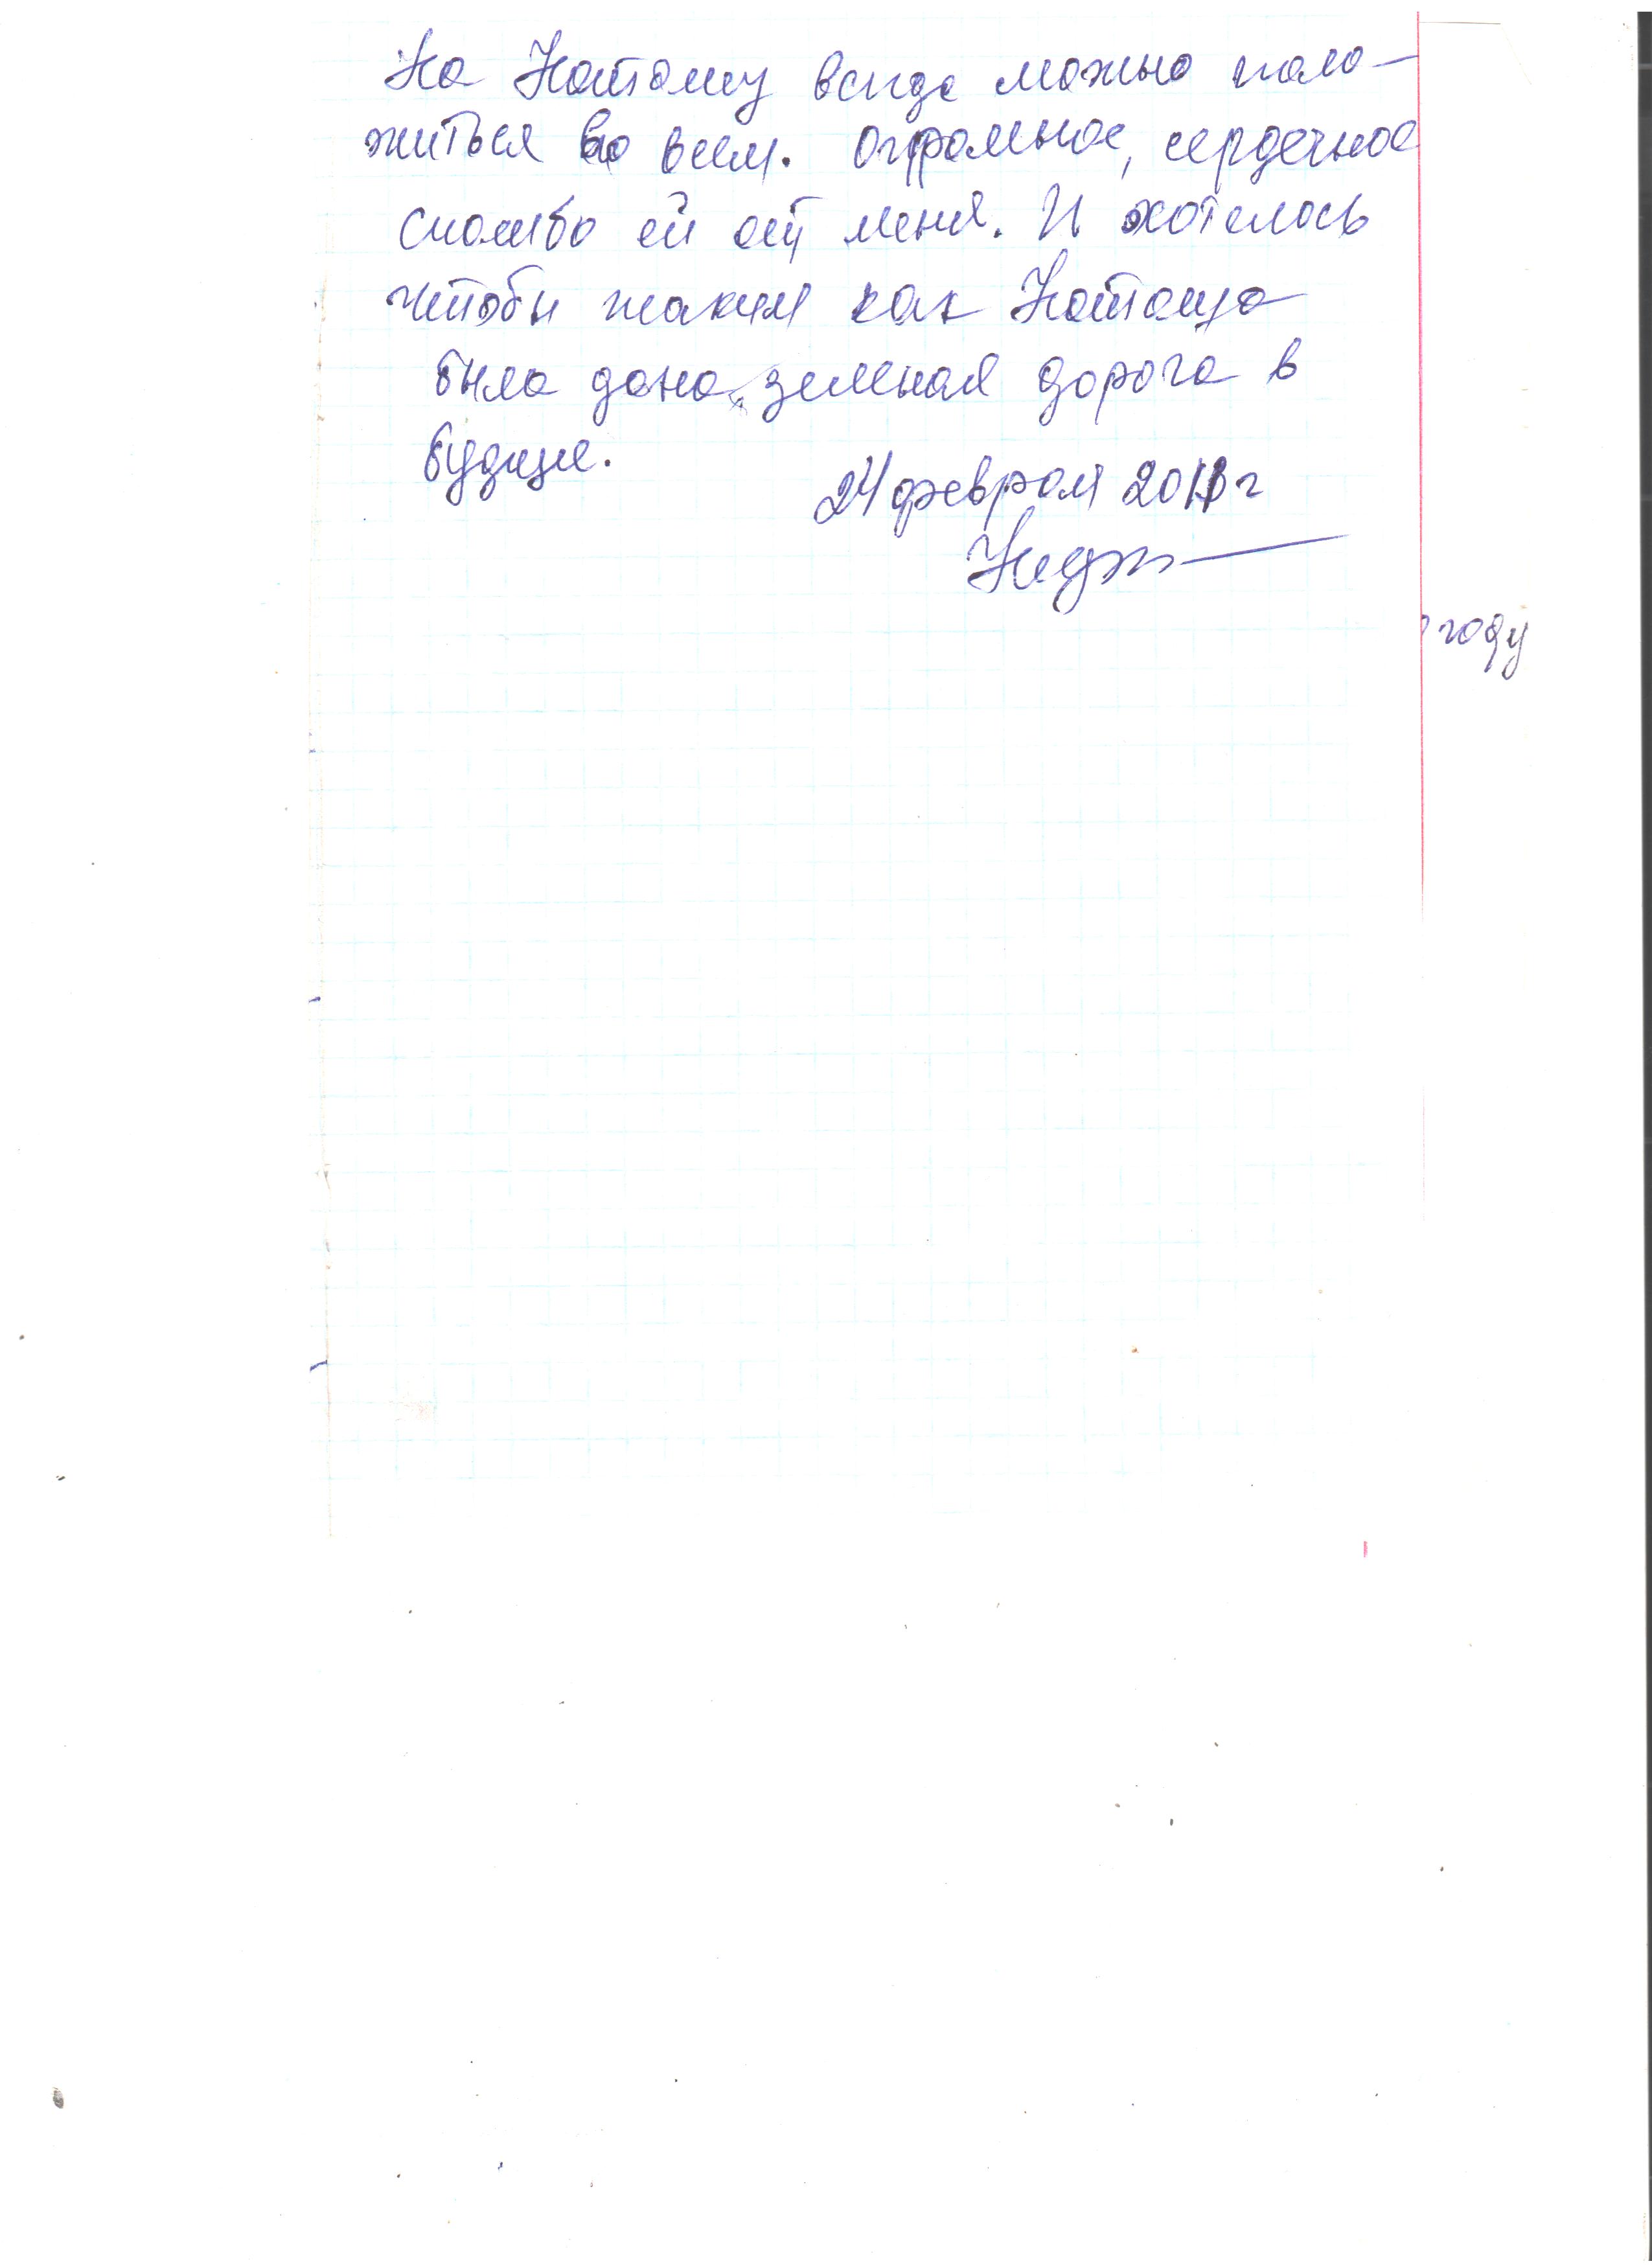 На Наташу всигда можно поло-
житься во всем. Огромное, сердечное
спасибо ей от меня. И хотелось
чтобы таким как Наташа
была дана зеленая дорога в
будуще.
24 февраля г
году